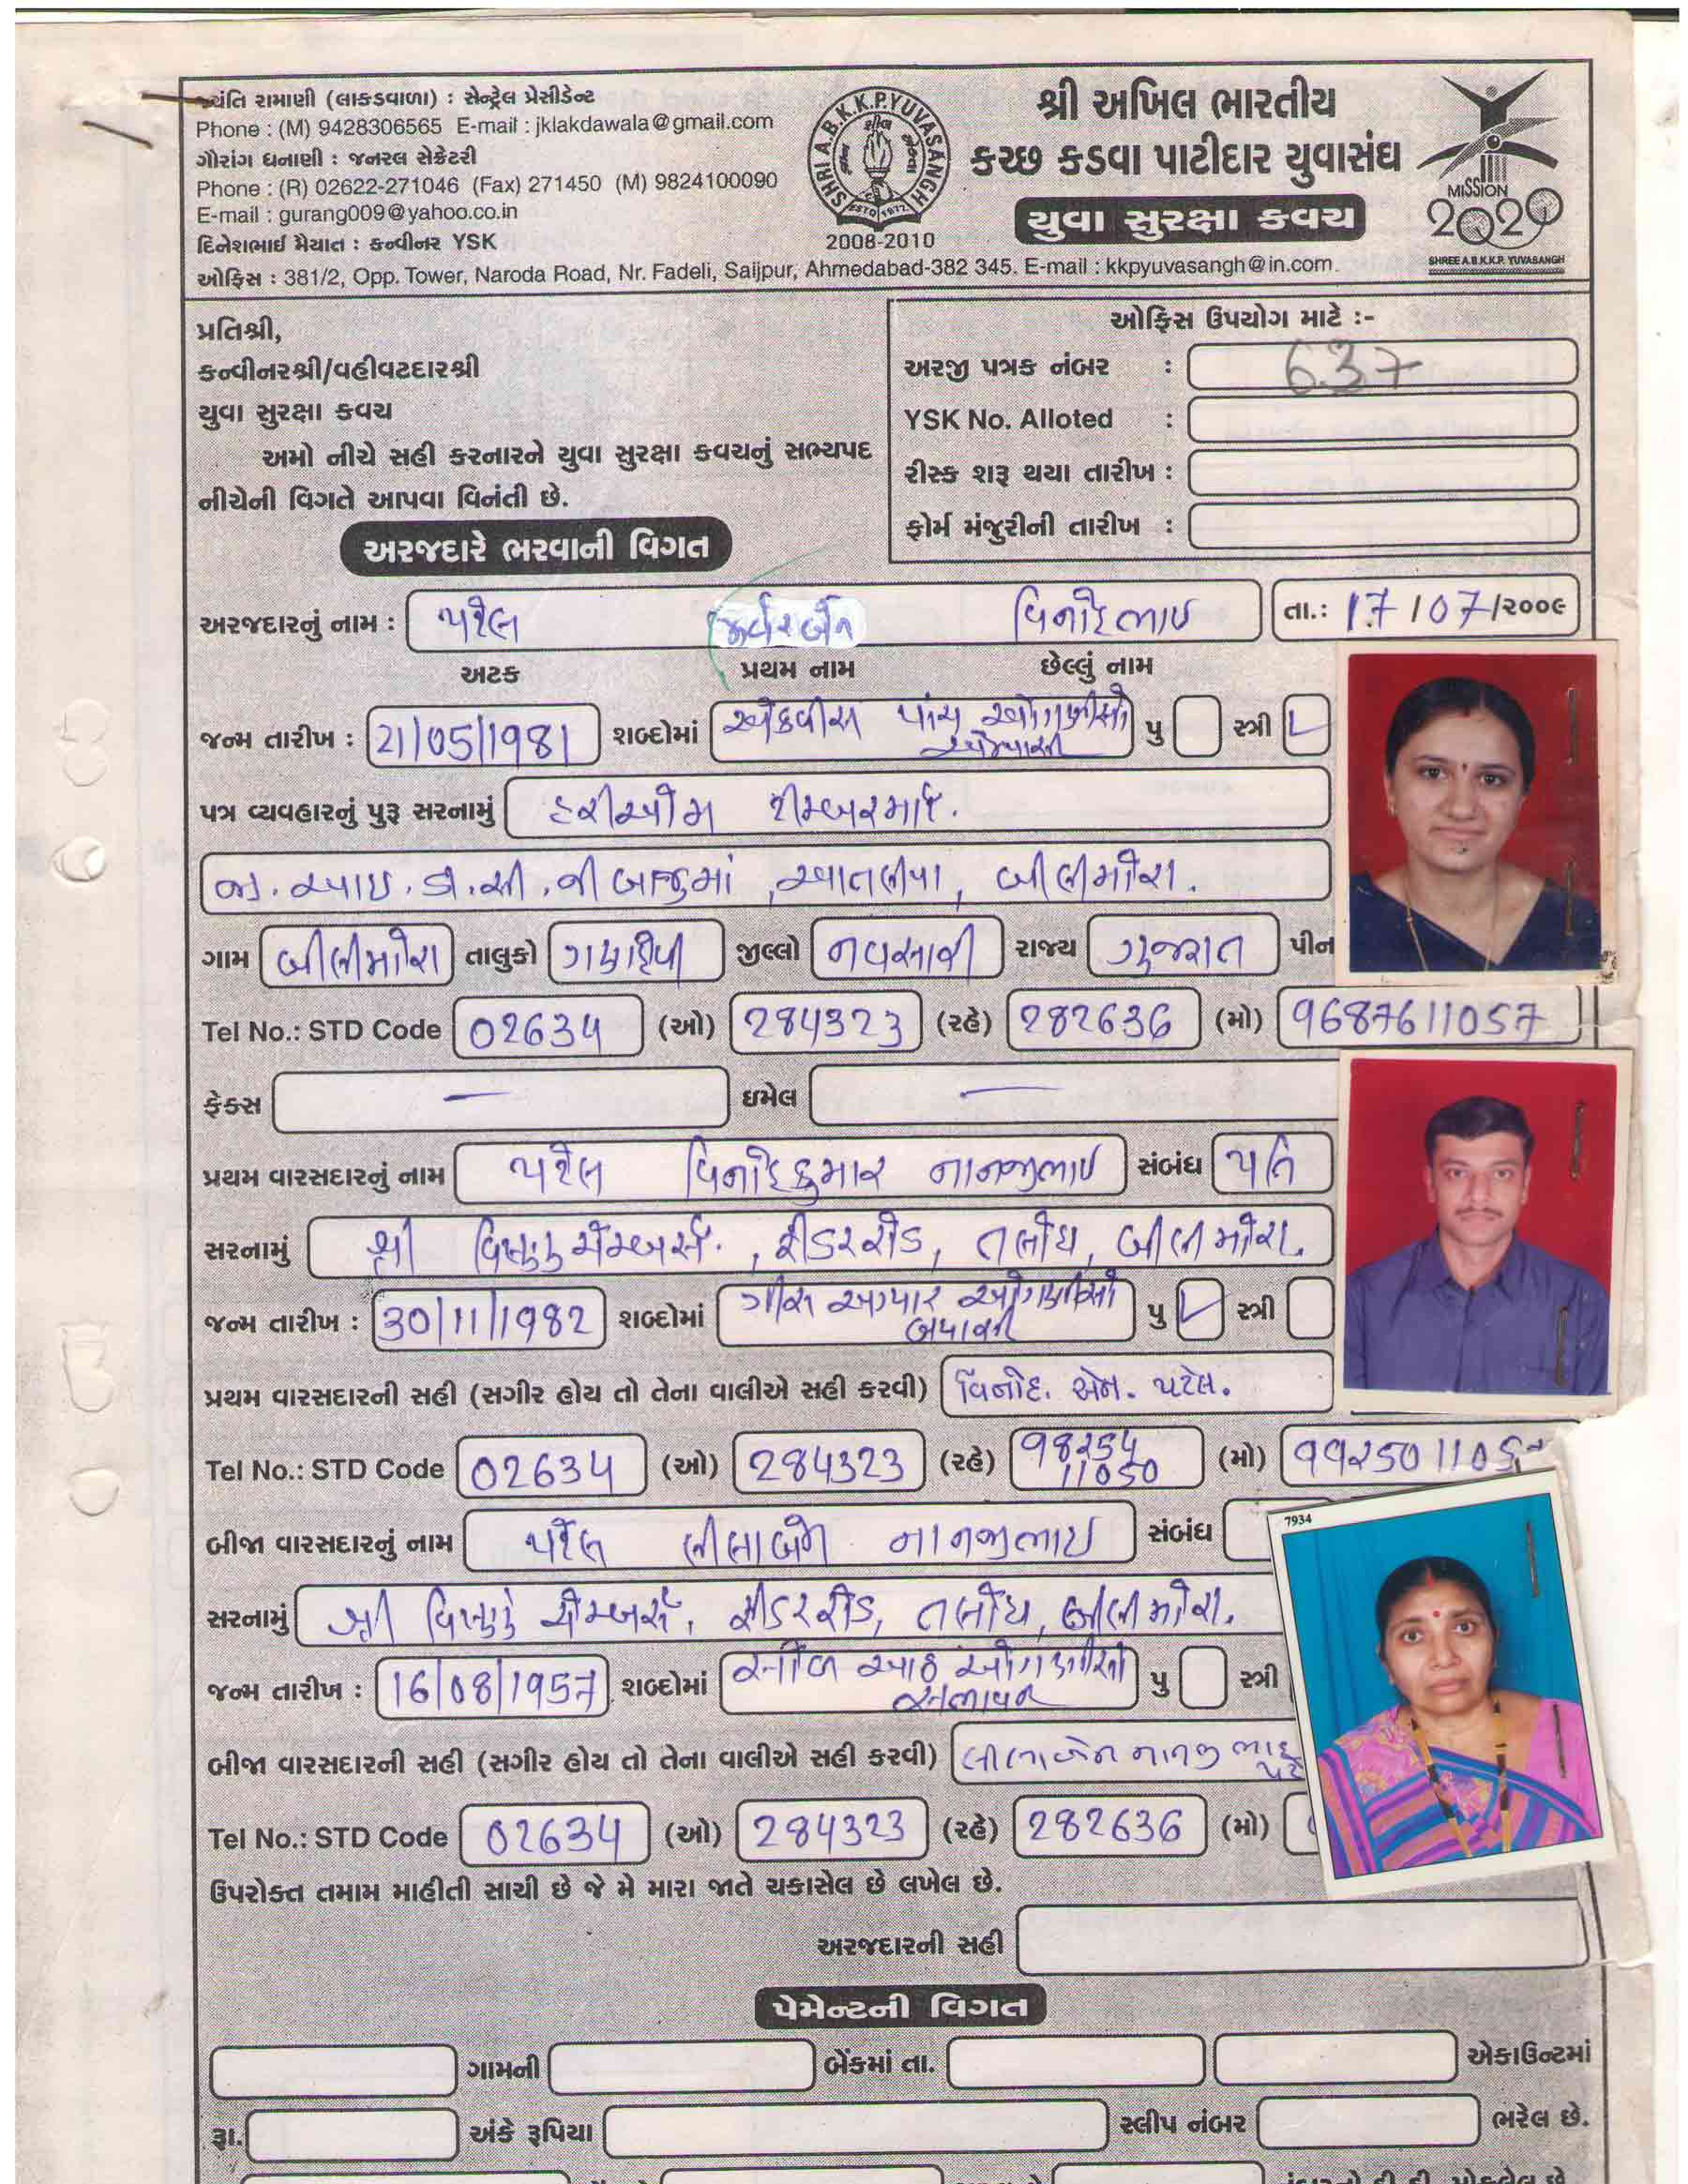 યંતિ રામાણી (લાકડાવાળા) : સેન્ટ્રેલ પ્રેસીડેન્ટ
Phone : (M) 9428306565 E-mail : jklakdawala@gmail.com
ગૌરાંગ ધનાણી : જનરલ સેક્રેટરી
Phone : (R) 02622-271046 (Fax) 271450 (M) 9824100090
E-mail : gurang009@yahoo.co.in
દિનેશભાઈ મૈયાત : કન્વીનર YSK
SHRI A.B.K.K.P. YUVASANGH
ESTD 1977
2008-2010
શ્રી અખિલ ભારતીય
કચ્છ કડવા પાટીદાર યુવાસંઘ
યુવા સુરક્ષા કવચ
MISSION
2020
SHREE A.B.K.K.P. YUVASANGH
ઓફિસ : 381/2, Opp. Tower, Naroda Road, Nr. Fadeli, Saijpur, Ahmedabad-382 345. E-mail : kkpyuvasangh@in.com.
પ્રતિશ્રી,
કન્વીનરશ્રી/વહીવટદારશ્રી
યુવા સુરક્ષા કવચ
અમો નીચે સહી કરનારને યુવા સુરક્ષા કવચનું સભ્યપદ
નીચેની વિગતે આપવા વિનંતી છે.
ઓફિસ ઉપયોગ માટે :-
અરજી પત્રક નંબર : 637
YSK No. Alloted :
રીસ્ક શરૂ થયા તારીખ :
ફોર્મ મંજુરીની તારીખ :
અરજદારે ભરવાની વિગત
અરજદારનું નામ : પટેલ વિનોદભાઇ તા.: 17/07/૨૦૦૯
અટક પ્રથમ નામ છેલ્લું નામ
જન્મ તારીખ : 21/05/1981 શબ્દોમાં એકવીસ પાંચ ઓગણીસો એક્યાસી પુ સ્ત્રી
પત્ર વ્યવહારનું પુરૂ સરનામું હરીઓમ ટીમ્બરમાર્ટ.
જી.આઇ.ડી.સી.ની બાજુમાં, આતલીયા, બીલીમોરા.
ગામ બીલીમોરા તાલુકો ગણદેવી જીલ્લો નવસારી રાજ્ય ગુજરાત પીન
Tel No.: STD Code 02634 (ઓ) 284323 (રહે) 282636 (મો) 9687611057
ફેક્સ — ઇમેલ —
પ્રથમ વારસદારનું નામ પટેલ વિનોદકુમાર નાનજીભાઇ સંબંધ પતિ
સરનામું શ્રી વિષ્ણુ ચેમ્બર્સ, ફીડરરોડ, તલોધ, બીલીમોરા.
જન્મ તારીખ : 30/11/1982 શબ્દોમાં ત્રીસ અગ્યાર ઓગણીસો બયાસી પુ સ્ત્રી
પ્રથમ વારસદારની સહી (સગીર હોય તો તેના વાલીએ સહી કરવી) વિનોદ. એન. પટેલ.
Tel No.: STD Code 02634 (ઓ) 284323 (રહે) 98254 11050 (મો)
બીજા વારસદારનું નામ પટેલ લીલાબેન નાનજીભાઇ સંબંધ
7934
સરનામું શ્રી વિષ્ણુ ચેમ્બર્સ, ફીડરરોડ, તલોધ, બીલીમોરા.
જન્મ તારીખ : 16/08/1957 શબ્દોમાં સોળ આઠ ઓગણીસો સત્તાવન પુ સ્ત્રી
બીજા વારસદારની સહી (સગીર હોય તો તેના વાલીએ સહી કરવી) લીલાબેન નાનજીભાઇ
Tel No.: STD Code 02634 (ઓ) 284323 (રહે) 282636 (મો)
ઉપરોક્ત તમામ માહીતી સાચી છે જે મે મારા જાતે ચકાસેલ છે લખેલ છે.
અરજદારની સહી
પેમેન્ટની વિગત
ગામની બેંકમાં તા. એકાઉન્ટમાં
રૂા. અંકે રૂપિયા સ્લીપ નંબર ભરેલ છે.